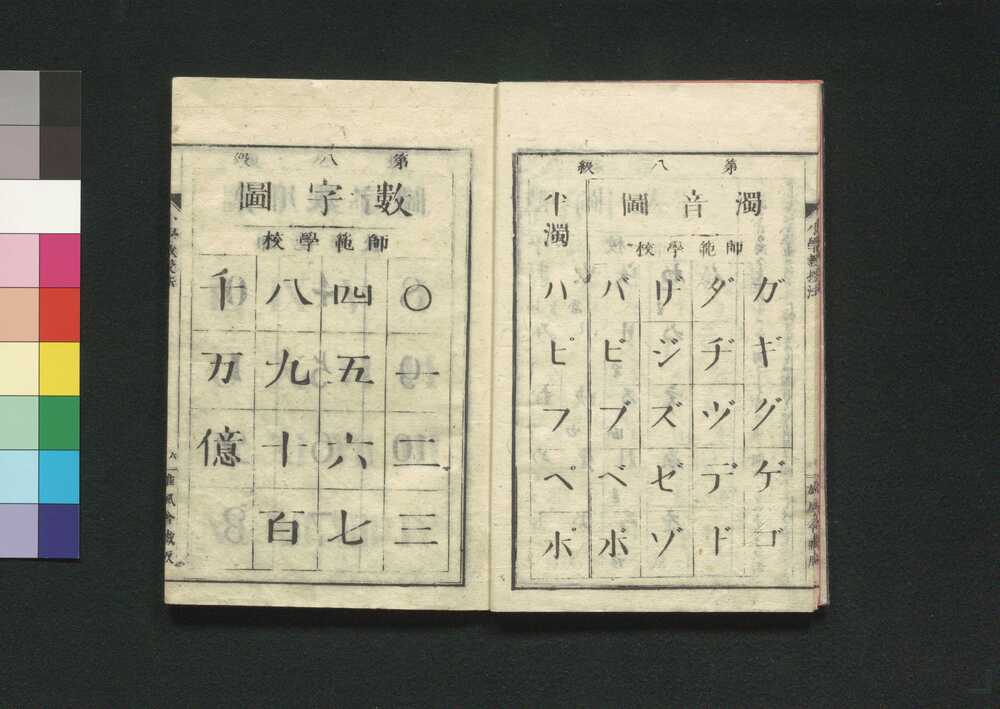 第八級
濁音圖
師範學校
ガギグゲゴ
ダヂヅデド
ザジズゼゾ
バビブベボ
半濁
パピプペポ
小學教授法
第八級
數字圖
師範學校
〇一二三
四五六七
八九十百
千万億